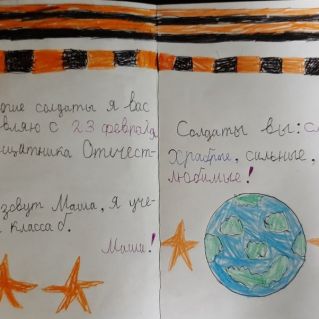 огие солдаты я вас
вляю с 23 февраля
щитника Отечест-
зовут Маша, я уче-
класса б.
Маша!
Солдаты вы:
Храбрые, сильные,
любимые!